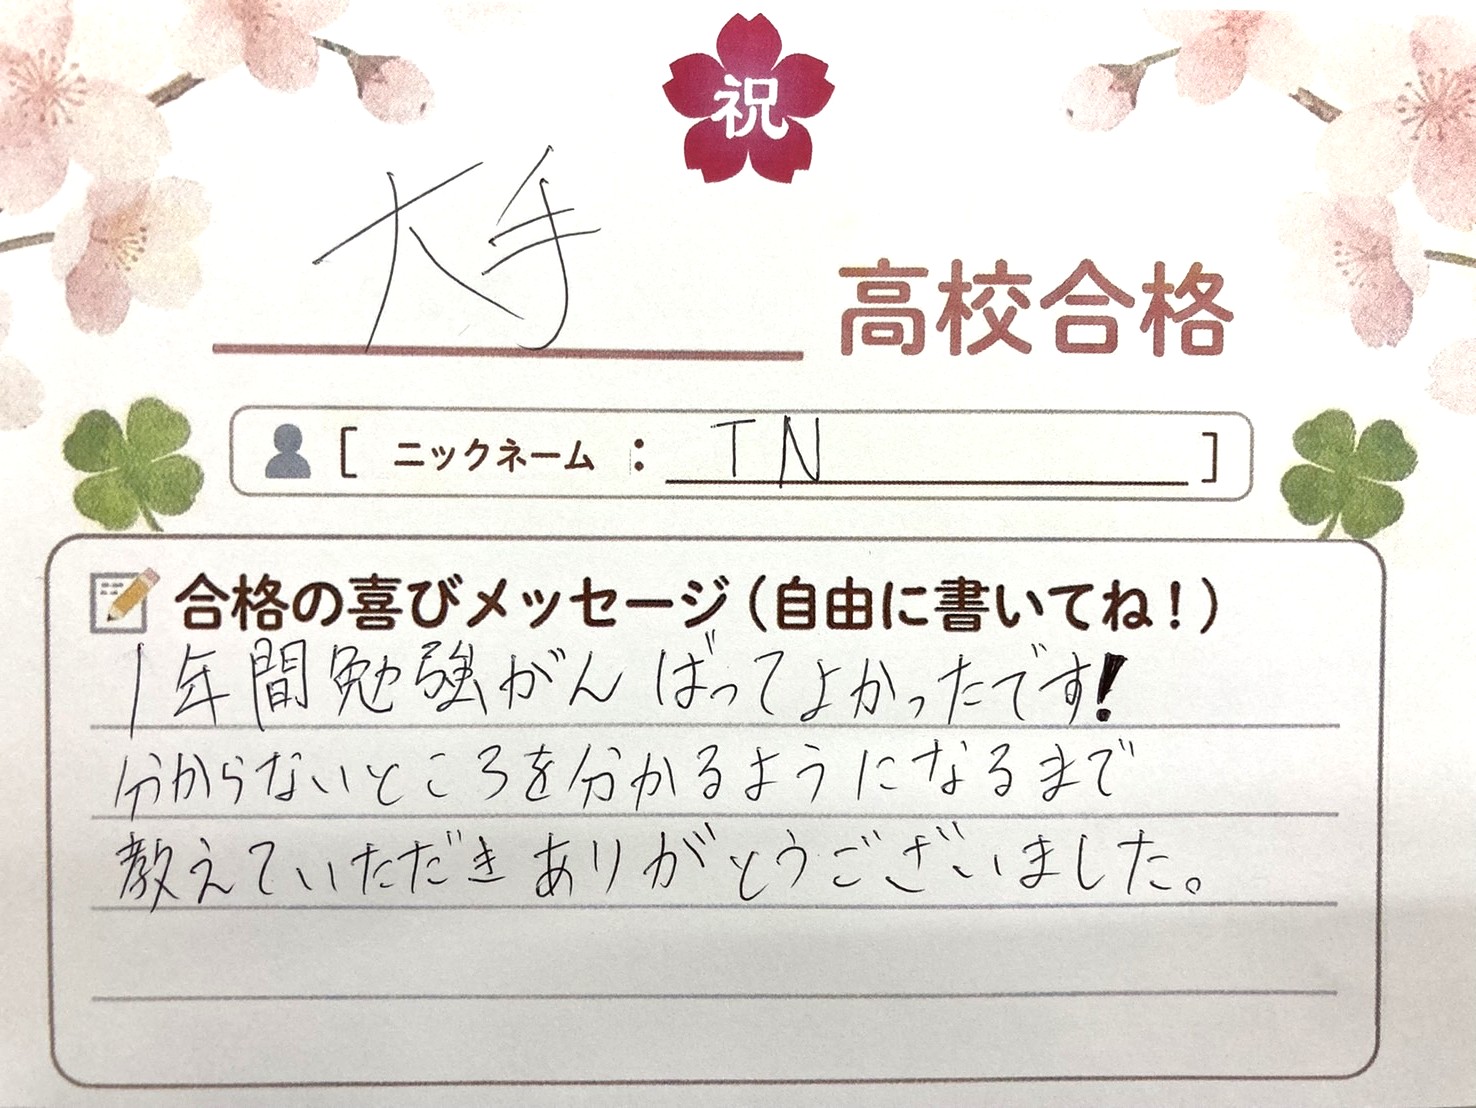 祝
大手 高校合格
[ ニックネーム : TN ]
合格の喜びメッセージ(自由に書いてね!)
1年間勉強がんばってよかったです!
分からないところを分かるようになるまで
教えていただきありがとうございました。